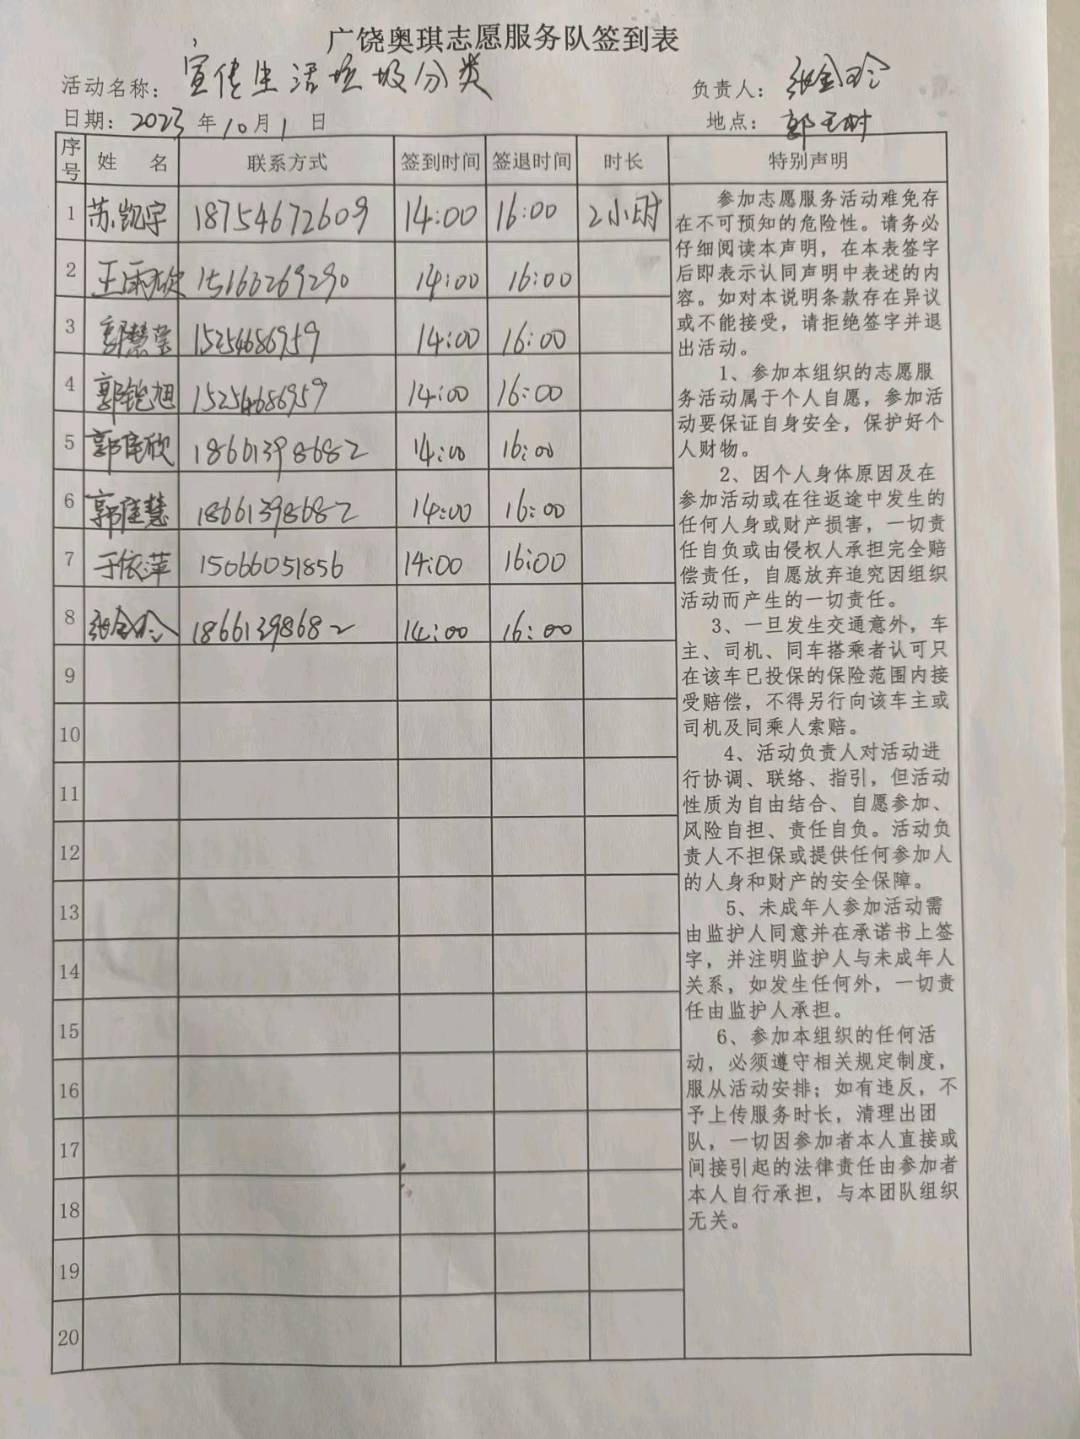 广饶奥琪志愿服务队签到表
活动名称：宣传生活垃圾分类 负责人：张金玲
日期：2023年10月1日 地点：郭王村
序号 姓 名 联系方式 签到时间 签退时间 时长 特别声明
1 苏凯宇 18754672609 14:00 16:00 2小时
2 王雨欣 15166269290 14:00 16:00
3 郭慧莹 15254686959 14:00 16:00
4 郭铠旭 15254686959 14:00 16:00
5 郭佳欣 18661398682 14:00 16:00
6 郭佳慧 18661398682 14:00 16:00
7 于依萍 15066051856 14:00 16:00
8 张金玲 18661398682 14:00 16:00
9
10
11
12
13
14
15
16
17
18
19
20
参加志愿服务活动难免存
在不可预知的危险性。请务必
仔细阅读本声明，在本表签字
后即表示认同声明中表述的内
容。如对本说明条款存在异议
或不能接受，请拒绝签字并退
出活动。
1、参加本组织的志愿服
务活动属于个人自愿，参加活
动要保证自身安全，保护好个
人财物。
2、因个人身体原因及在
参加活动或在往返途中发生的
任何人身或财产损害，一切责
任自负或由侵权人承担完全赔
偿责任，自愿放弃追究因组织
活动而产生的一切责任。
3、一旦发生交通意外，车
主、司机、同车搭乘者认可只
在该车已投保的保险范围内接
受赔偿，不得另行向该车主或
司机及同乘人索赔。
4、活动负责人对活动进
行协调、联络、指引，但活动
性质为自由结合、自愿参加、
风险自担、责任自负。活动负
责人不担保或提供任何参加人
的人身和财产的安全保障。
5、未成年人参加活动需
由监护人同意并在承诺书上签
字，并注明监护人与未成年人
关系，如发生任何外，一切责
任由监护人承担。
6、参加本组织的任何活
动，必须遵守相关规定制度，
服从活动安排；如有违反，不
予上传服务时长，清理出团
队，一切因参加者本人直接或
间接引起的法律责任由参加者
本人自行承担，与本团队组织
无关。